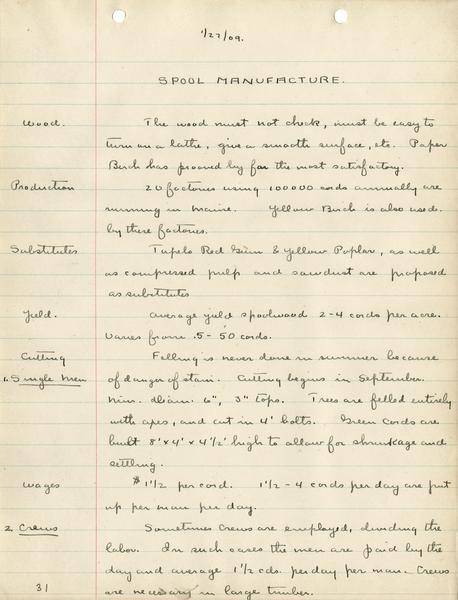 1/27/09.
SPOOL MANUFACTURE.
Wood. The wood must not check, must be easy to
turn on a lathe, give a smooth surface, etc. Paper
Birch has prooved by far the most satisfactory.
Production 20 factories using 100000 cords annually are
running in Maine. Yellow Birch is also used
by these factories.
Substitutes Tupelo Red Gum & Yellow Poplar, as well
as compressed pulp and sawdust are proposed
as substitutes
Yield. Average yield spoolwood 2-4 cords per acre.
Varies from .5-50 cords.
Cutting Felling is never done in summer because
1. Single Men of danger of stain. Cutting begins in September.
Min. diam. 6", 3" tops. Trees are felled entirely
with axes, and cut in 4' bolts. Green cords are
built 8'x4'x4 1/2' high to allow for shrinkage and
settling.
Wages $1 1/2 per cord. 1 1/2-4 cords per day are put
up per man per day.
2. Crews Sometimes crews are employed, dividing the
labor. In such cases the men are paid by the
day and average 1 1/2 cds. per day per man. Crews
31 are necessary in large timber.